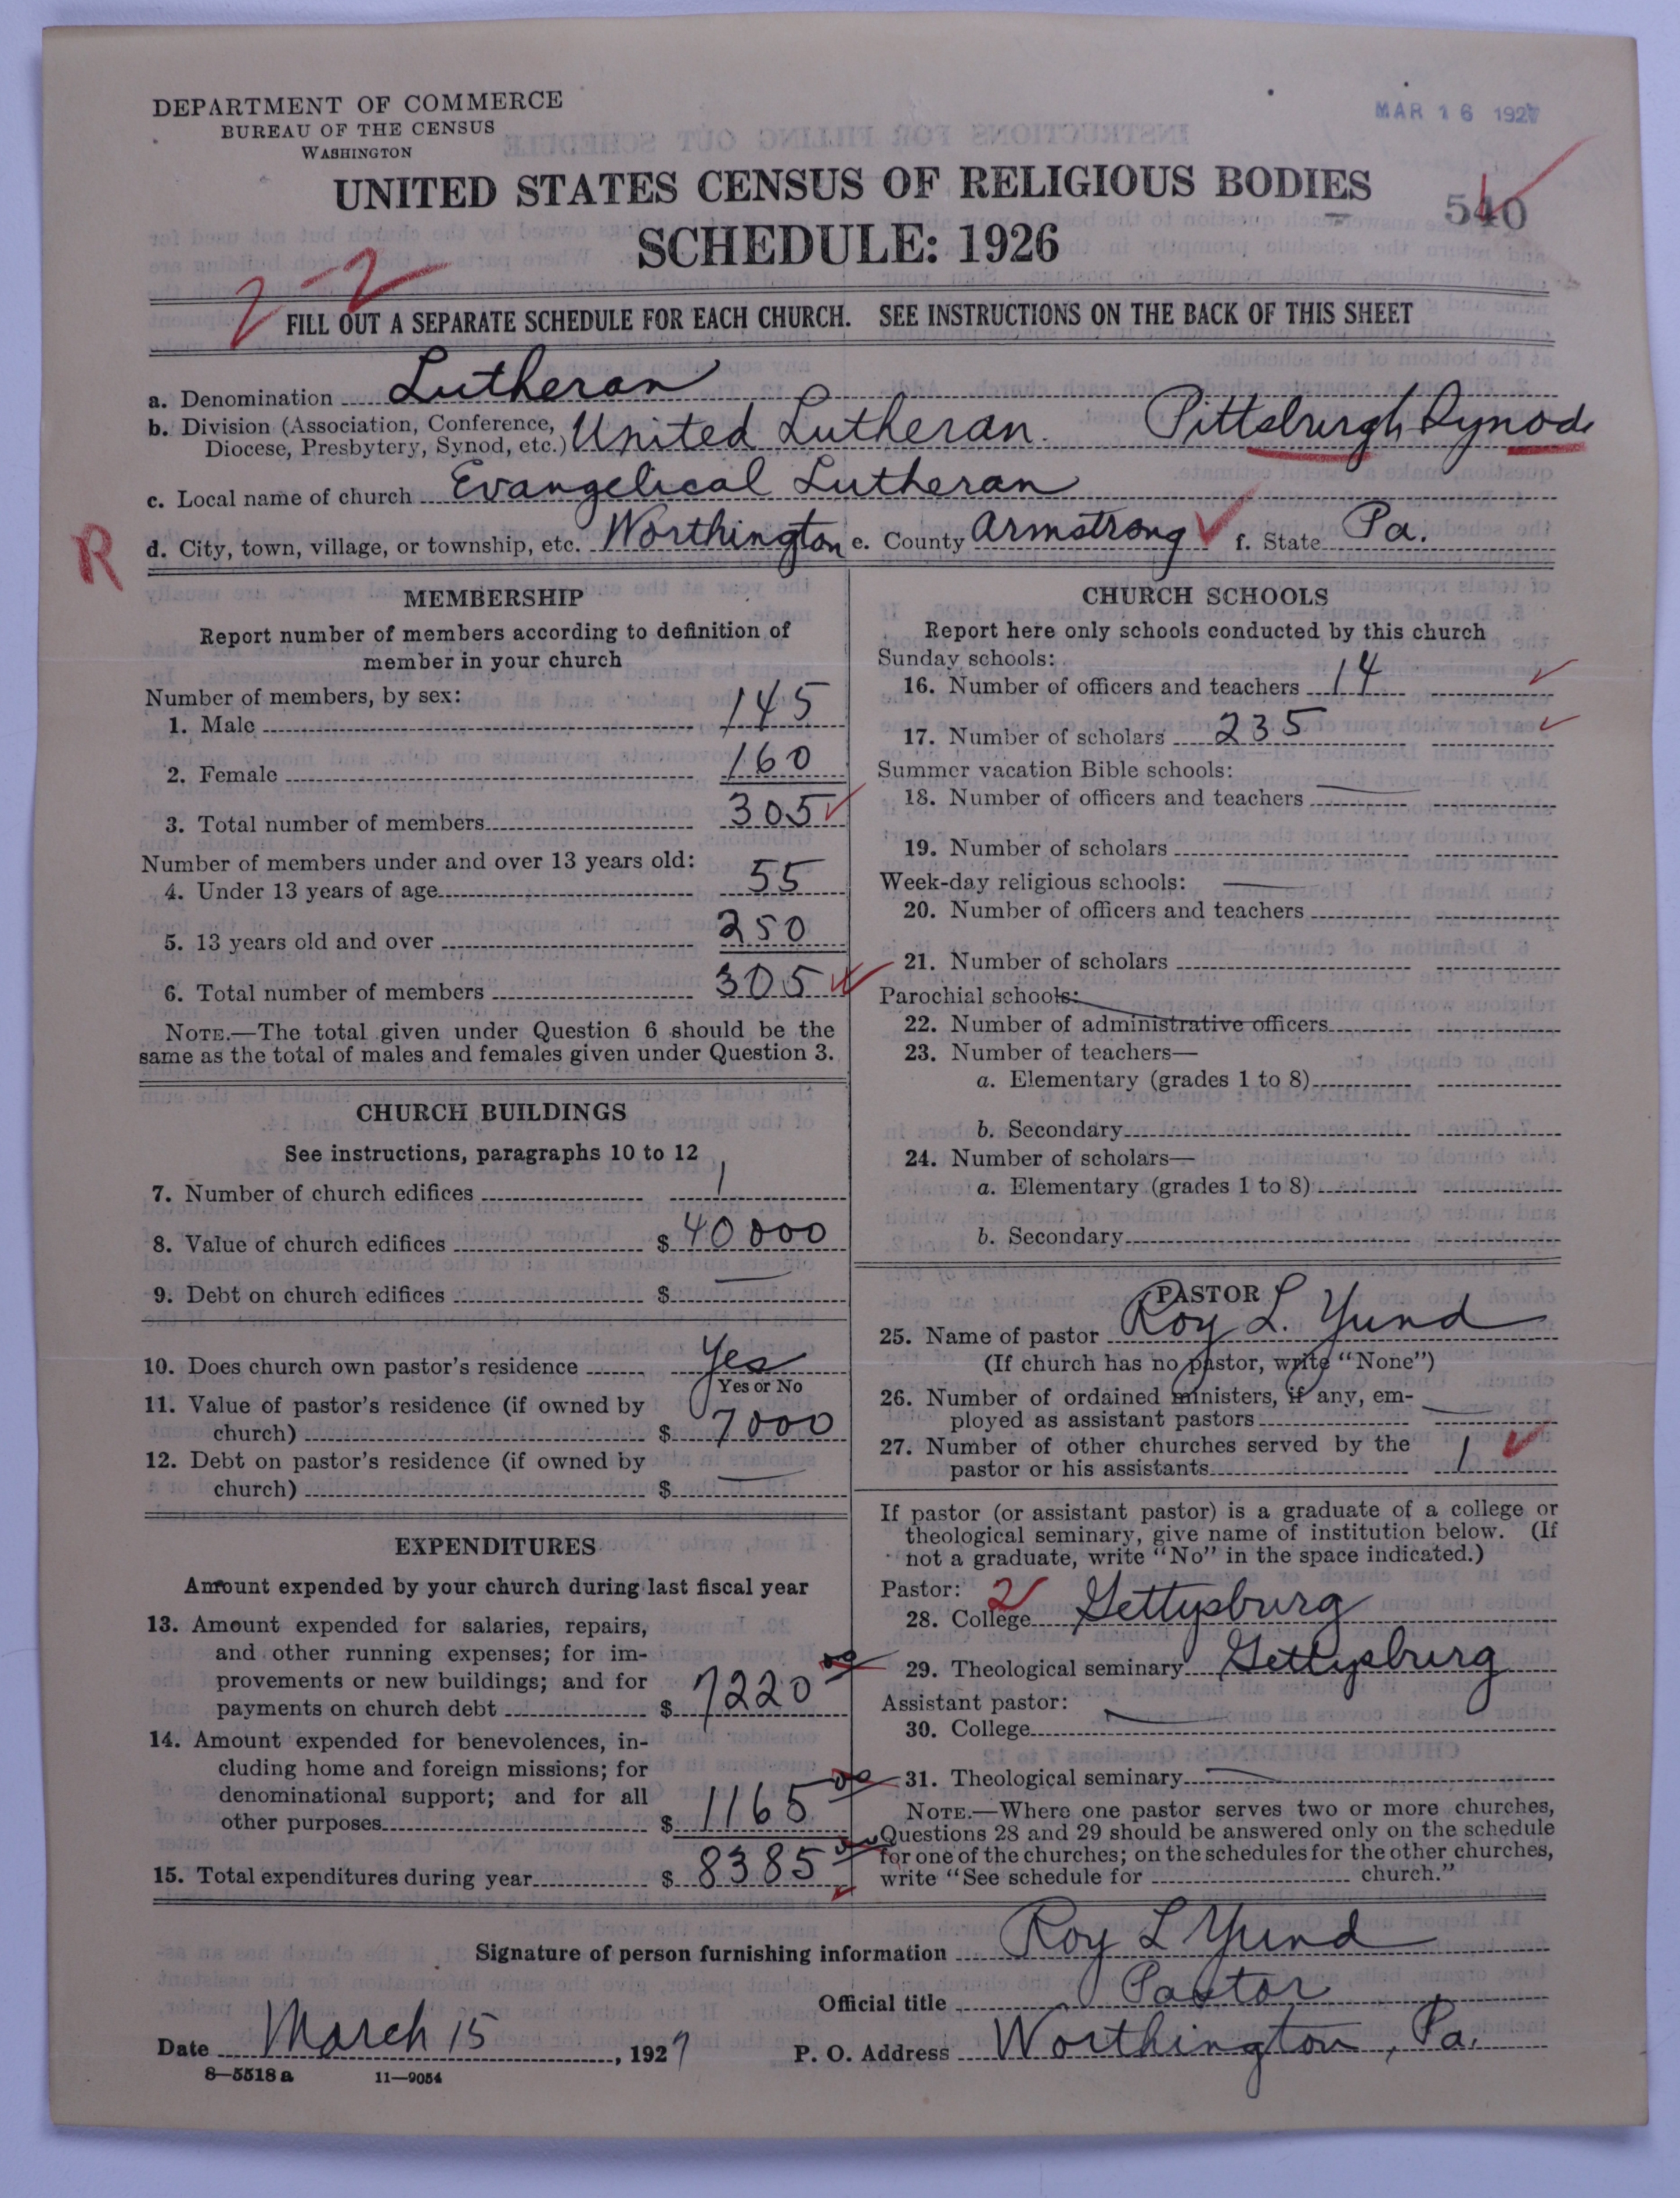 DEPARTMENT OF COMMERCE
BUREAU OF THE CENSUS
WASHINGTON
MAR 16 1927
UNITED STATES CENSUS OF RELIGIOUS BODIES
540
SCHEDULE: 1926
2-2
FILL OUT A SEPARATE SCHEDULE FOR EACH CHURCH. SEE INSTRUCTIONS ON THE BACK OF THIS SHEET
a. Denomination Lutheran
b. Division (Association, Conference, Diocese, Presbytery, Synod, etc.) United Lutheran. Pittsburgh Synod
c. Local name of church Evangelical Lutheran
R
d. City, town, village, or township, etc. Worthington e. County Armstrong f. State Pa.
MEMBERSHIP
Report number of members according to definition of
member in your church
Number of members, by sex:
1. Male 145
2. Female 160
3. Total number of members 305
Number of members under and over 13 years old:
4. Under 13 years of age 55
5. 13 years old and over 250
6. Total number of members 305
NOTE.—The total given under Question 6 should be the
same as the total of males and females given under Question 3.
CHURCH BUILDINGS
See instructions, paragraphs 10 to 12
7. Number of church edifices 1
8. Value of church edifices $ 40000
9. Debt on church edifices $ —
10. Does church own pastor's residence Yes
Yes or No
11. Value of pastor's residence (if owned by
church) $ 7000
12. Debt on pastor's residence (if owned by
church) $ —
EXPENDITURES
Amount expended by your church during last fiscal year
13. Amount expended for salaries, repairs,
and other running expenses; for im-
provements or new buildings; and for
payments on church debt $ 7220 00
14. Amount expended for benevolences, in-
cluding home and foreign missions; for
denominational support; and for all
other purposes $ 1165 00
15. Total expenditures during year $ 8385 00
CHURCH SCHOOLS
Report here only schools conducted by this church
Sunday schools:
16. Number of officers and teachers 14
17. Number of scholars 235
Summer vacation Bible schools:
18. Number of officers and teachers —
19. Number of scholars
Week-day religious schools: —
20. Number of officers and teachers
21. Number of scholars
Parochial schools:
22. Number of administrative officers
23. Number of teachers—
a. Elementary (grades 1 to 8)
b. Secondary
24. Number of scholars—
a. Elementary (grades 1 to 8)
b. Secondary
PASTOR
25. Name of pastor Roy L. Yund
(If church has no pastor, write "None")
26. Number of ordained ministers, if any, em-
ployed as assistant pastors —
27. Number of other churches served by the
pastor or his assistants 1
If pastor (or assistant pastor) is a graduate of a college or
theological seminary, give name of institution below. (If
not a graduate, write "No" in the space indicated.)
Pastor: 2
28. College Gettysburg
29. Theological seminary Gettysburg
Assistant pastor:
30. College —
31. Theological seminary —
NOTE.—Where one pastor serves two or more churches,
Questions 28 and 29 should be answered only on the schedule
for one of the churches; on the schedules for the other churches,
write "See schedule for church."
Signature of person furnishing information Roy L Yund
Official title Pastor
Date March 15, 1927 P. O. Address Worthington, Pa.
8—5518 a 11—9054